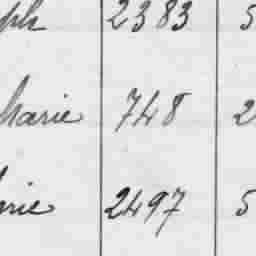 ph 2383 5
Marie 748 2
arie 2497 5